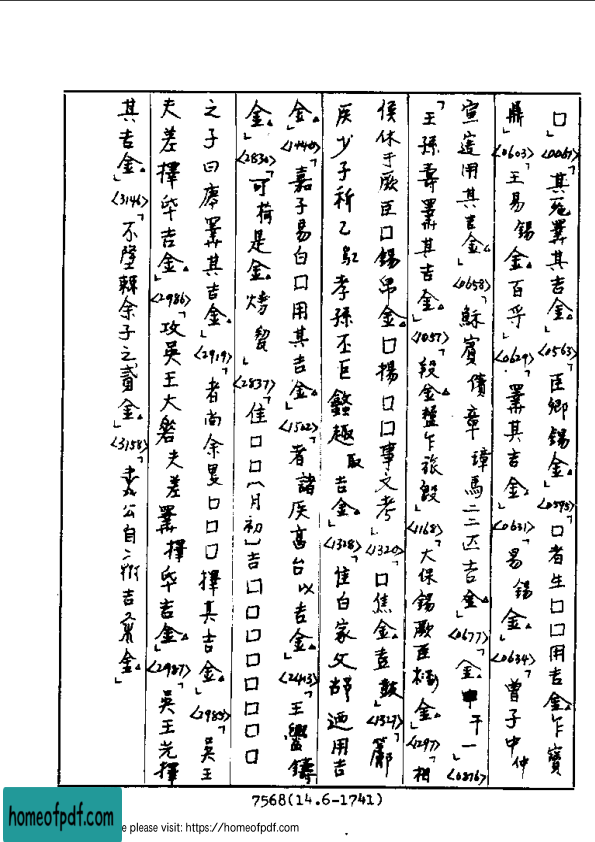 口」<0061>「其 羃其吉金。」<0563>「臣卿錫金。」<0595>「口者生口口用吉金乍寶
鼎」<0603>「王易錫金。百寽」<0629>「羃其吉金。」<0631>「易錫金。」<0634>「曾子中仲
宣 用其吉金。」<0658>「穌賓 章璋馬二三匹吉金。」<0677>「金 干一」<0876>
「王孫壽羃其吉金。」<1057>「段金 乍旅殷」<1168>「大保錫厥臣 金。」<1297>「相
侯休于厥臣口錫帛金。口揚口口事文考」<1320>「口焦金。壴鼓」<1327>「
疾少子 乙 孝孫丕巨 趣取吉金。」<1328>「隹白家父 迺用吉
金。」<1440>「嘉子易白口用其吉金。」<1502>「者諸疾 台以吉金。」<2413>「王 鑄
金。」<2830>「可荷是金。 」<2837>「隹口口(月初)吉口口口口口口口
之子曰 羃其吉金。」<2919>「者尚余 口口口擇其吉金。」<2985>「吳王
夫差擇厥吉金。」<2986>「攻吳王大 夫差羃擇厥吉金。」<2987>「吳王光擇
其吉金。」<3146>「不墜 余子之 金。」<3158>「 公自 吉 金。」
7568(14.6-1741)
homeofpdf.com
e please visit: https://homeofpdf.com